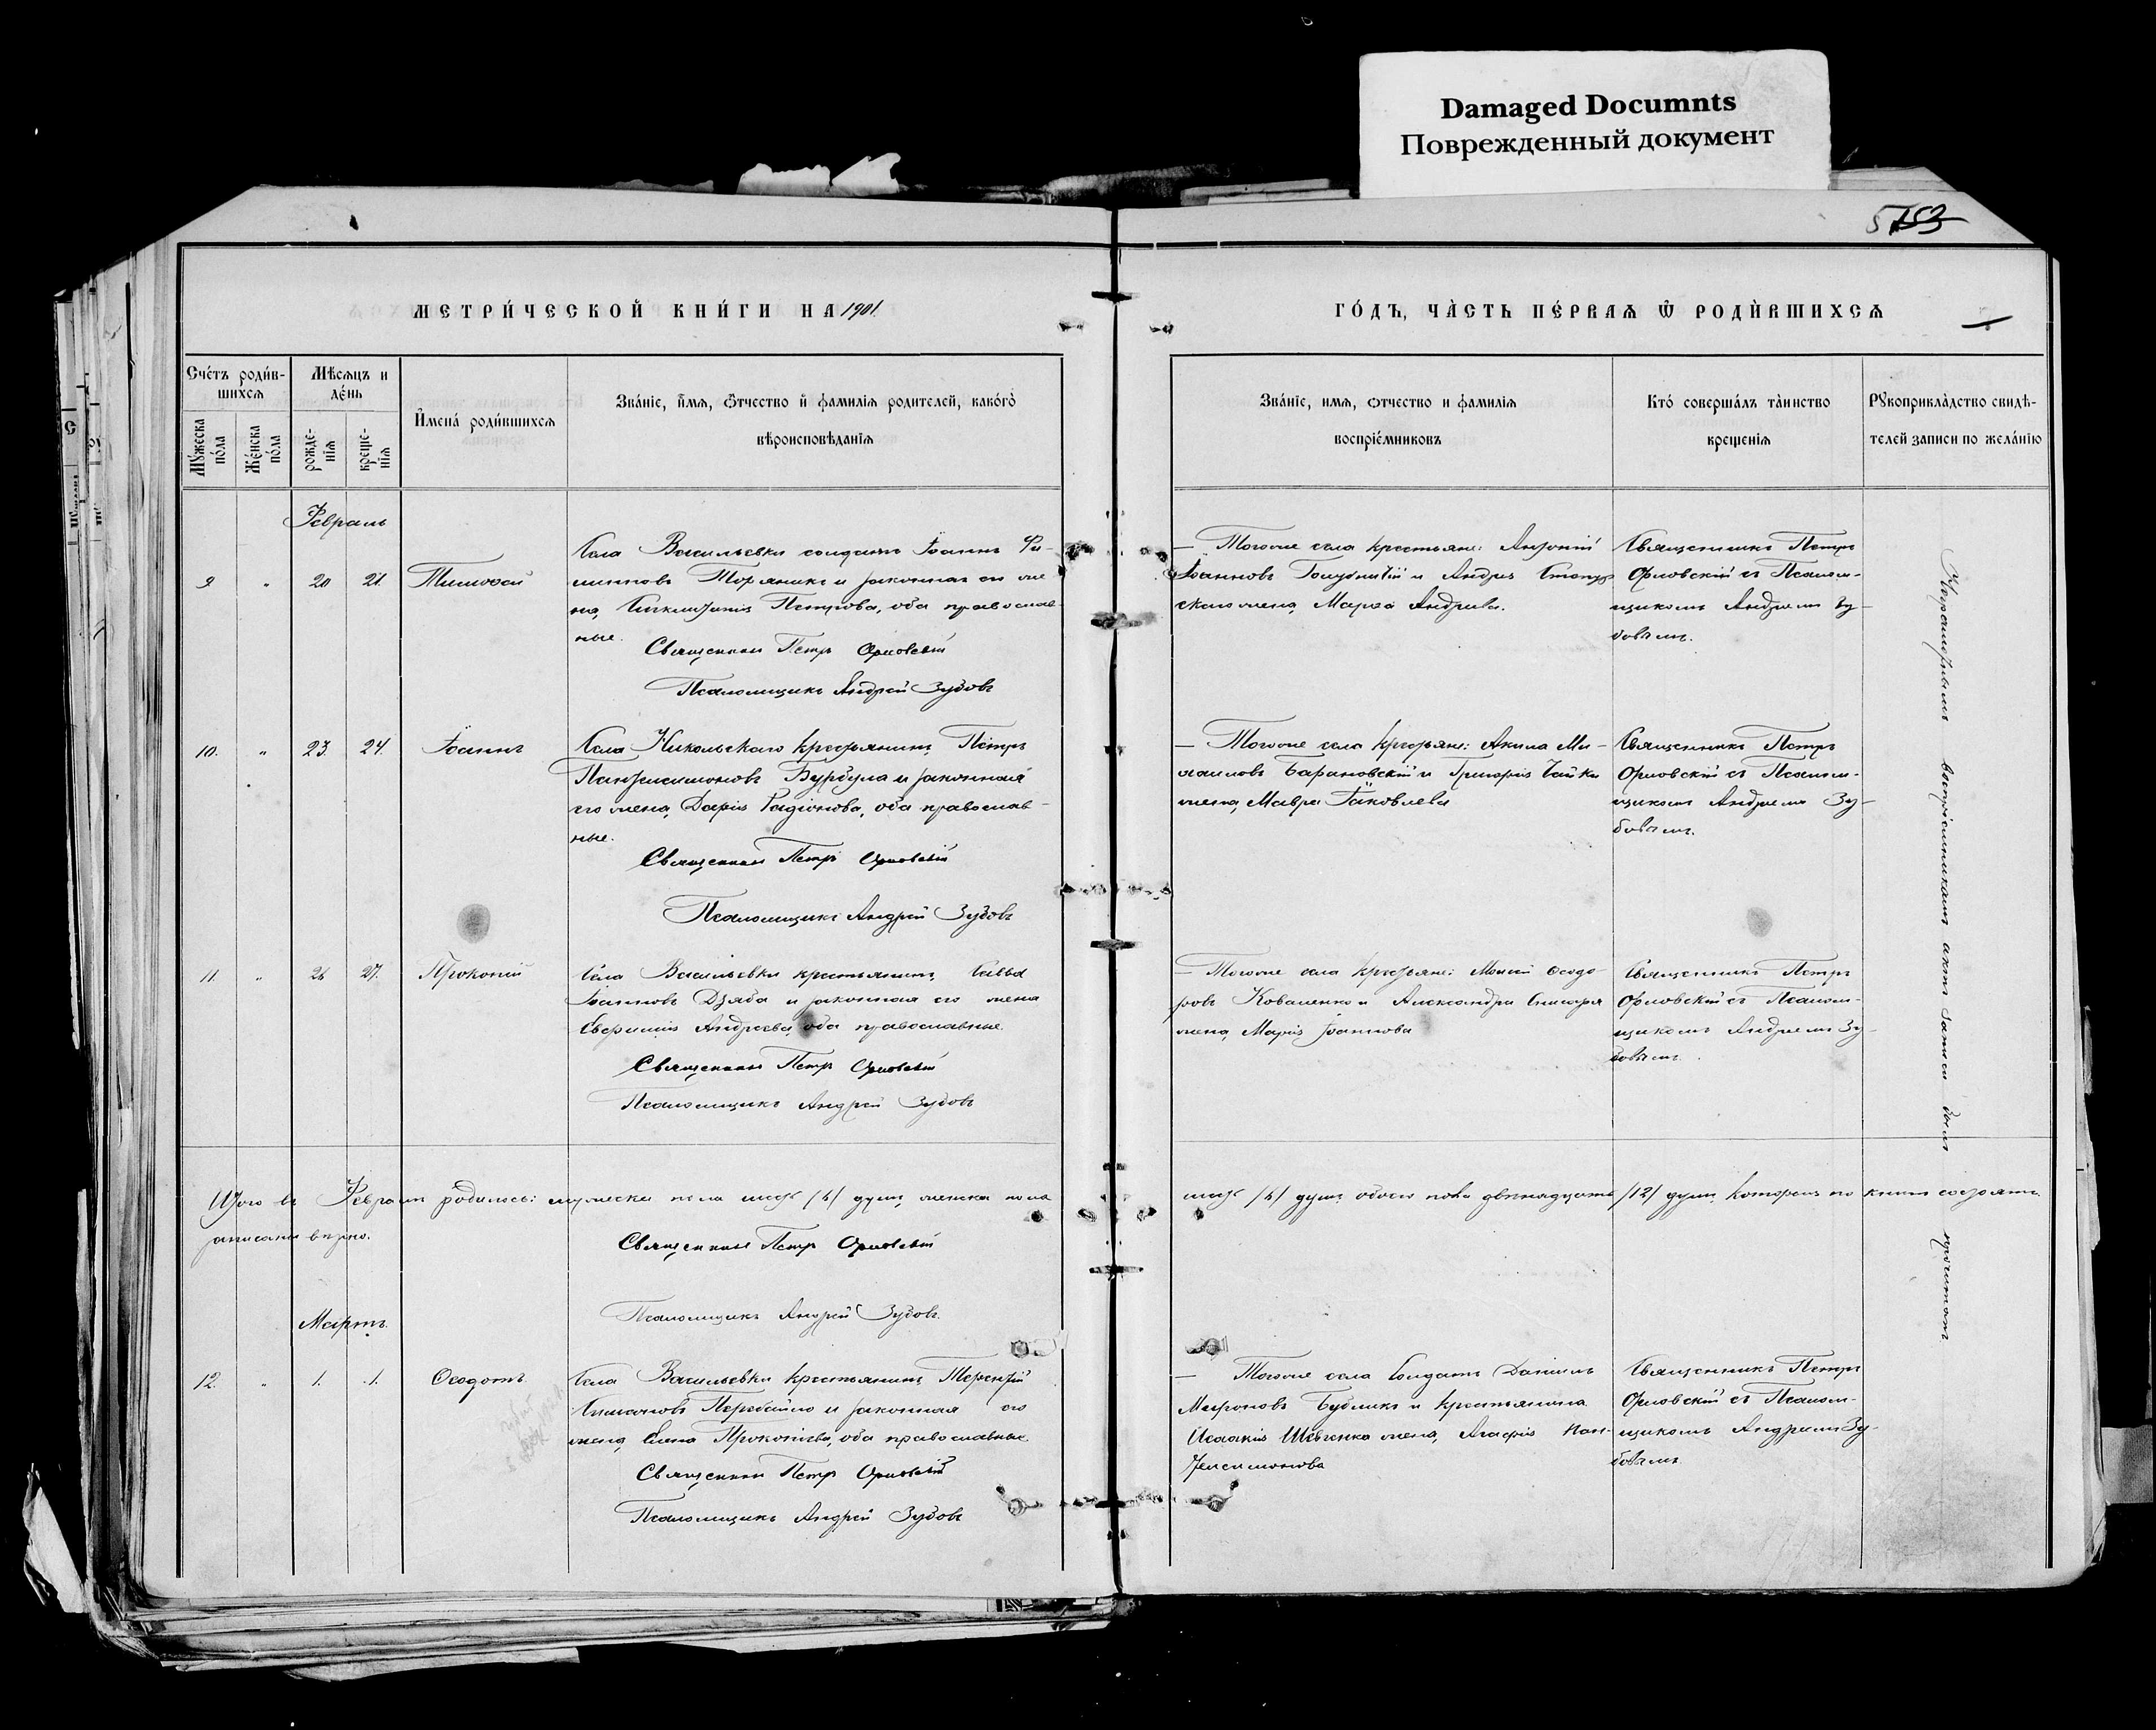 Damaged Documnts
Поврежденный документ
5
153
МЕТРИ́ЧЕСКОЙ КНИ́ГИ НА 1901
ГО́ДЪ, ЧА̀СТЬ ПЕ́РВАѦ Ѡ҆ РОДЍВШИХСѦ
Сче́тъ роди́в-
шихсѧ
Мѣсѧцъ и
де́нь
Му́жеска
по́ла
Же́нска
по́ла
рожде-
нїѧ
креще-
нїѧ
И҆мена́ роди́вшихсѧ
Зва́нїе, и҆́мѧ, ѻ҆́тчество и҆ фамилїѧ родителей, како́гѡ
вѣроисповѣданїѧ
Зва́нїе, имѧ, ѻтчество и фамилїѧ
воспрїе́мниковъ
Кто́ соверша́лъ та̀инство
крещенїѧ
Рꙋкоприкла̀дство свидѣ-
телей записи по жела́нїю
Февраль
9 " 20 21 Тимоѳей
Села Васильевки солдатъ Іоаннъ Фи-
липповъ Торяникъ и законная его же
на, Петрова, оба православ-
ные.
Священникъ Петръ Орловскій
Псаломщикъ Андрей Зубовъ
— Тогоже села крестьяне: Антоній
Іоанновъ и Андрея
жена, Марѳа Андреева.
Священникъ Петръ
Орловскій съ Псалом-
щикомъ Андреемъ Зу-
бовымъ.
10. " 23. 24. Іоаннъ
Села Никольскаго крестьянинъ Петръ
Пантелеимоновъ Бурбула и законная
его жена, Дарія Радіонова, оба православ-
ные.
Священникъ Петръ Орловскій
Псаломщикъ Андрей Зубовъ
— Тогоже села крестьяне: Акила Ми-
хаиловъ Барановскій и Григорія Чайки
жена, Мавра Іаковлева
Священникъ Петръ
Орловскій съ Псалом-
щикомъ Андреемъ Зу-
бовымъ.
11. " 26 27. Прокопій
Села Васильевки крестьянинъ, Савва
Іоанновъ Дзяба и законная его жена
Евфимія Андреева, оба православные.
Священникъ Петръ Орловскій
Псаломщикъ Андрей Зубовъ
— Тогоже села крестьяне: Моисей Ѳеодо-
ровъ Коваленко и Александра
жена, Марія Іоаннова
Священникъ Петръ
Орловскій съ Псалом-
щикомъ Андреемъ Зу-
бовымъ.
Итого въ Февралѣ родилось: мужеска пола шесть /6/ душъ, женска пола
шесть /6/ душъ, обоего пола двѣнадцать /12/ душъ, которые по книгѣ состоятъ.
записаны вѣрно.
Священникъ Петръ Орловскій
Псаломщикъ Андрей Зубовъ.
Мартъ.
12. " 1. 1. Ѳеодотъ
Села Васильевки крестьянинъ Терентій
Симоновъ Перебайло и законная его
жена, Елена Прокопіева, оба православные.
Священникъ Петръ Орловскій
Псаломщикъ Андрей Зубовъ
— Тогоже села Солдатъ Даніилъ
Мироновъ Бубликъ и крестьянина
Исаакія Шевченка жена, Агафія Пан-
телеимонова
Священникъ Петръ
Орловскій съ Псалом-
щикомъ Андреемъ Зу-
бовымъ.
Неграмотнымъ воспріемникамъ актъ записи былъ прочитанъ.